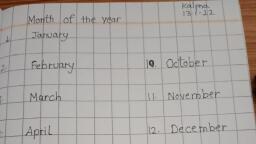 Kalpna
13-1-22
Month of the year
1. January
2. February
10. October
March
11. November
April
12. December